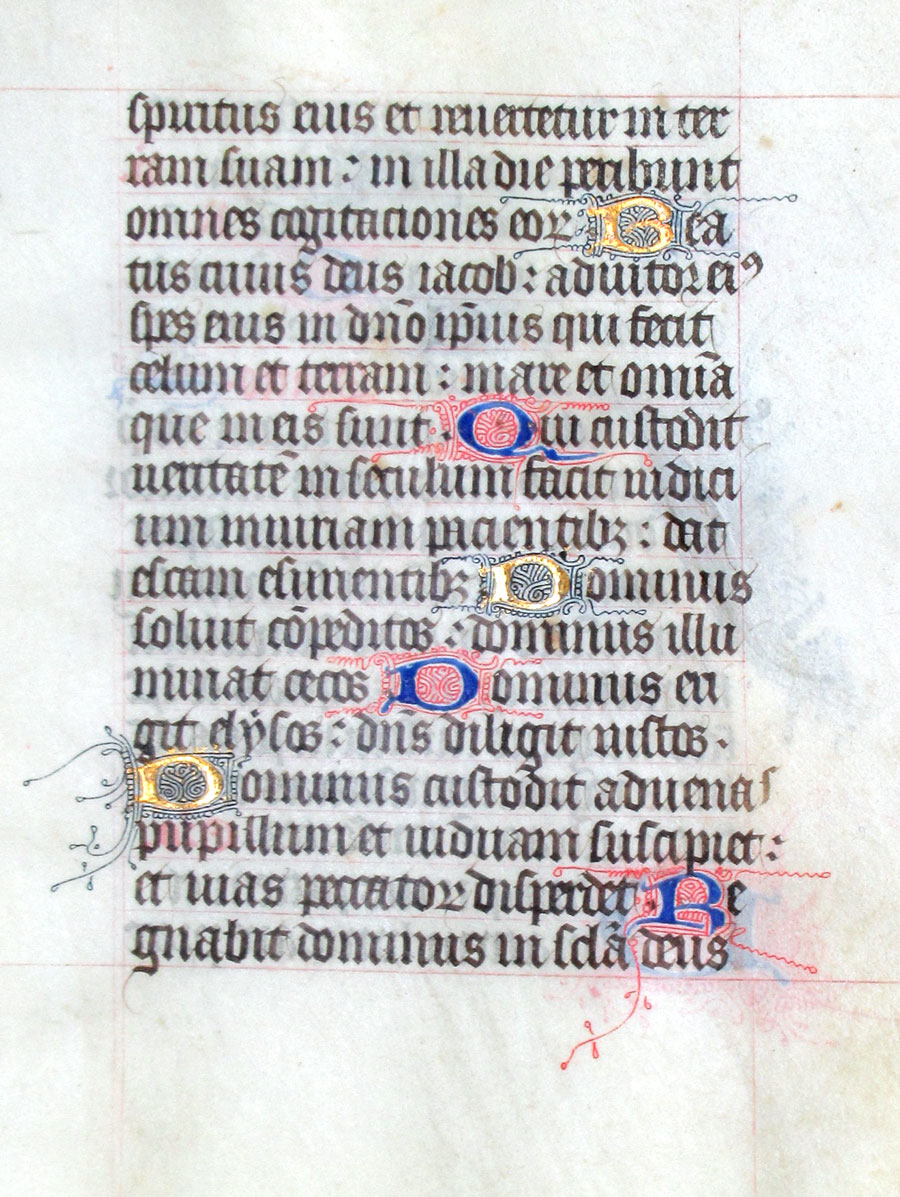 spiritus eius et reuertetur in ter
ram suam : in illa die peribunt
omnes cogitaciones eoꝝ Bea
tus cuius deus iacob : adiutor eiꝰ
spes eius in dn̄o ip̄ius qui fecit
celum et terram : mare et omīa
que in eis sunt . Qui custodit
ueritatē in seculum facit iudici
um iniuriam pacientibꝫ : dat
escam esurientibꝫ Dominus
soluit cōpeditos : dominus illu
minat cecos Dominus eri
git elysos : dn̄s diligit iustos .
Dominus custodit aduenas
pupillum et uiduam suscipiet :
et uias peccatoꝝ disperdet . Re
gnabit dominus in sclā deus